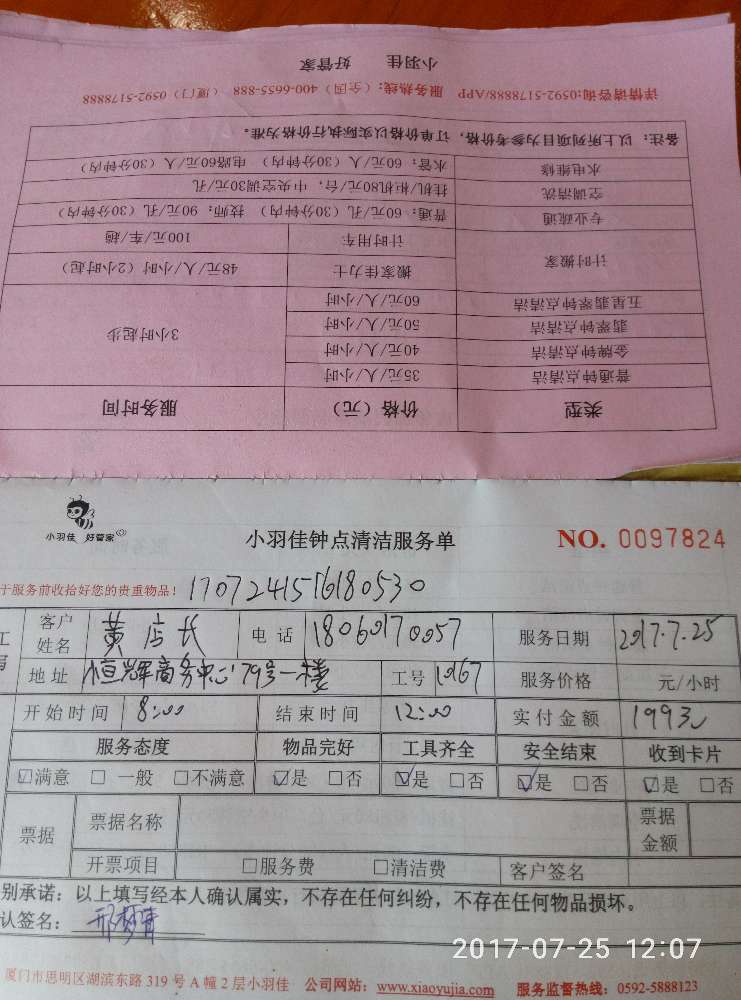 小羽佳 好管家
详情请咨询:0592-5178888/APP 服务热线:(全国)400-6655-888 (厦门)0592-5178888
备注:以上所列项目为参考价格,订单价格以实际执行价格为准。
水电维修 水管:60元/人(30分钟内) 电路60元/人(30分钟内)
空调清洗 挂机/柜机80元/台,中央空调30元/孔
专业疏通 普通:60元/孔(30分钟内) 技师:90元/孔(30分钟内)
计时搬家 计时用车 100元/车/趟
搬家佳力士 48元/人/小时(2小时起)
五星翡翠钟点清洁 60元/人/小时 3小时起步
翡翠钟点清洁 50元/人/小时
金牌钟点清洁 40元/人/小时
普通钟点清洁 35元/人/小时
类型 价格(元) 服务时间
小羽佳 好管家
小羽佳钟点清洁服务单 NO. 0097824
于服务前收拾好您的贵重物品! 17072415516180530
客户姓名 黄店长 电话 18060170057 服务日期 2017.7.25
地址 恒辉商务中心79号一楼 工号 1067 服务价格 元/小时
开始时间 8:00 结束时间 12:00 实付金额
服务态度 物品完好 工具齐全 安全结束 收到卡片
☑满意 □一般 □不满意 ☑是 □否 ☑是 □否 ☑是 □否 ☑是 □否
票据 票据名称 票据金额
开票项目 □服务费 □清洁费 客户签名
别承诺:以上填写经本人确认属实,不存在任何纠纷,不存在任何物品损坏。
认签名:
2017-07-25 12:07
厦门市思明区湖滨东路319号A幢2层小羽佳 公司网站:www.xiaoyujia.com 服务监督热线:0592-5888123